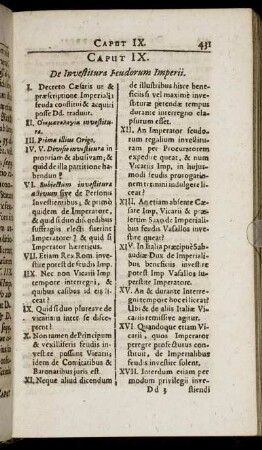 CAPUT IX. 431
CAPUT IX.
De Investitura Feudorum Imperii.
I. Decreto Cæsaris ut &
præscriptione Imperiali
feuda constitui & acquiri
posse Dd. traduut.
II. investitu-
ra.
III. Prima illius Origo,
IV. V. Divisio investitura in
propriam & abusivam, &
quid de illa partitione ha-
bendum?
VI. Subjectum investitura
activum sive de Persona
Investientibus; & primò
quidem de Imperatore,
& quid si duo dis ordibus
suffragiis electi fuerint
Imperatore? & quid si
Imperator hæreticus?
VII. Etiam Rex Rom. inve-
stire potest de feudis Imp.
IIX. Nec non Vicarii Imp.
tempore interregni, &
quibus casibus id ejs li-
ceat?
IX. Quid si duo plureave de
vicariatu inter se disce-
ptent?
X. Non tamen de Principum
& vexilliferis feudis in-
vestire possunt Vicarii;
idem de Comitatibus &
Baronatibus juris est.
XI. Neque aliud dicendum
de illustribus hisce bene-
ficiis si vel maximè inve-
stituræ petendæ tempus
durante interregno ela-
psurum esset.
XII. An Imperator feudo-
rum regalium investitu-
ram per Procuratorem
expedire queat, & num
Vicarii Imp. in hujus-
modi feudis prorogatio-
nem termini indulgere li-
ceat?
XIII. An etiam absente Cæsa-
re Imp. Vicarii & præ-
sertim Saxo de Imperiali-
bus feudis Vasallos inve-
stire queat?
XIV. In Italia præcipuè Sab-
audiæ Dux de Imperiali-
bus beneficiis investire
potest Imp Vasallos ju-
stitiente Imperatore.
XV. An & durante Interre-
gni tempore hoc ei liceat?
Ubi & de aliis Italiæ Vi-
cariis remissive agitur.
XVI. Quandoque etiam Vi-
carii, quos Imperator
peregre profecturus con-
stituit, de Imperialibus
feudis investire solent.
XVII. Interdum etiam per
modum privilegii inve-
Dd 3 stiendi